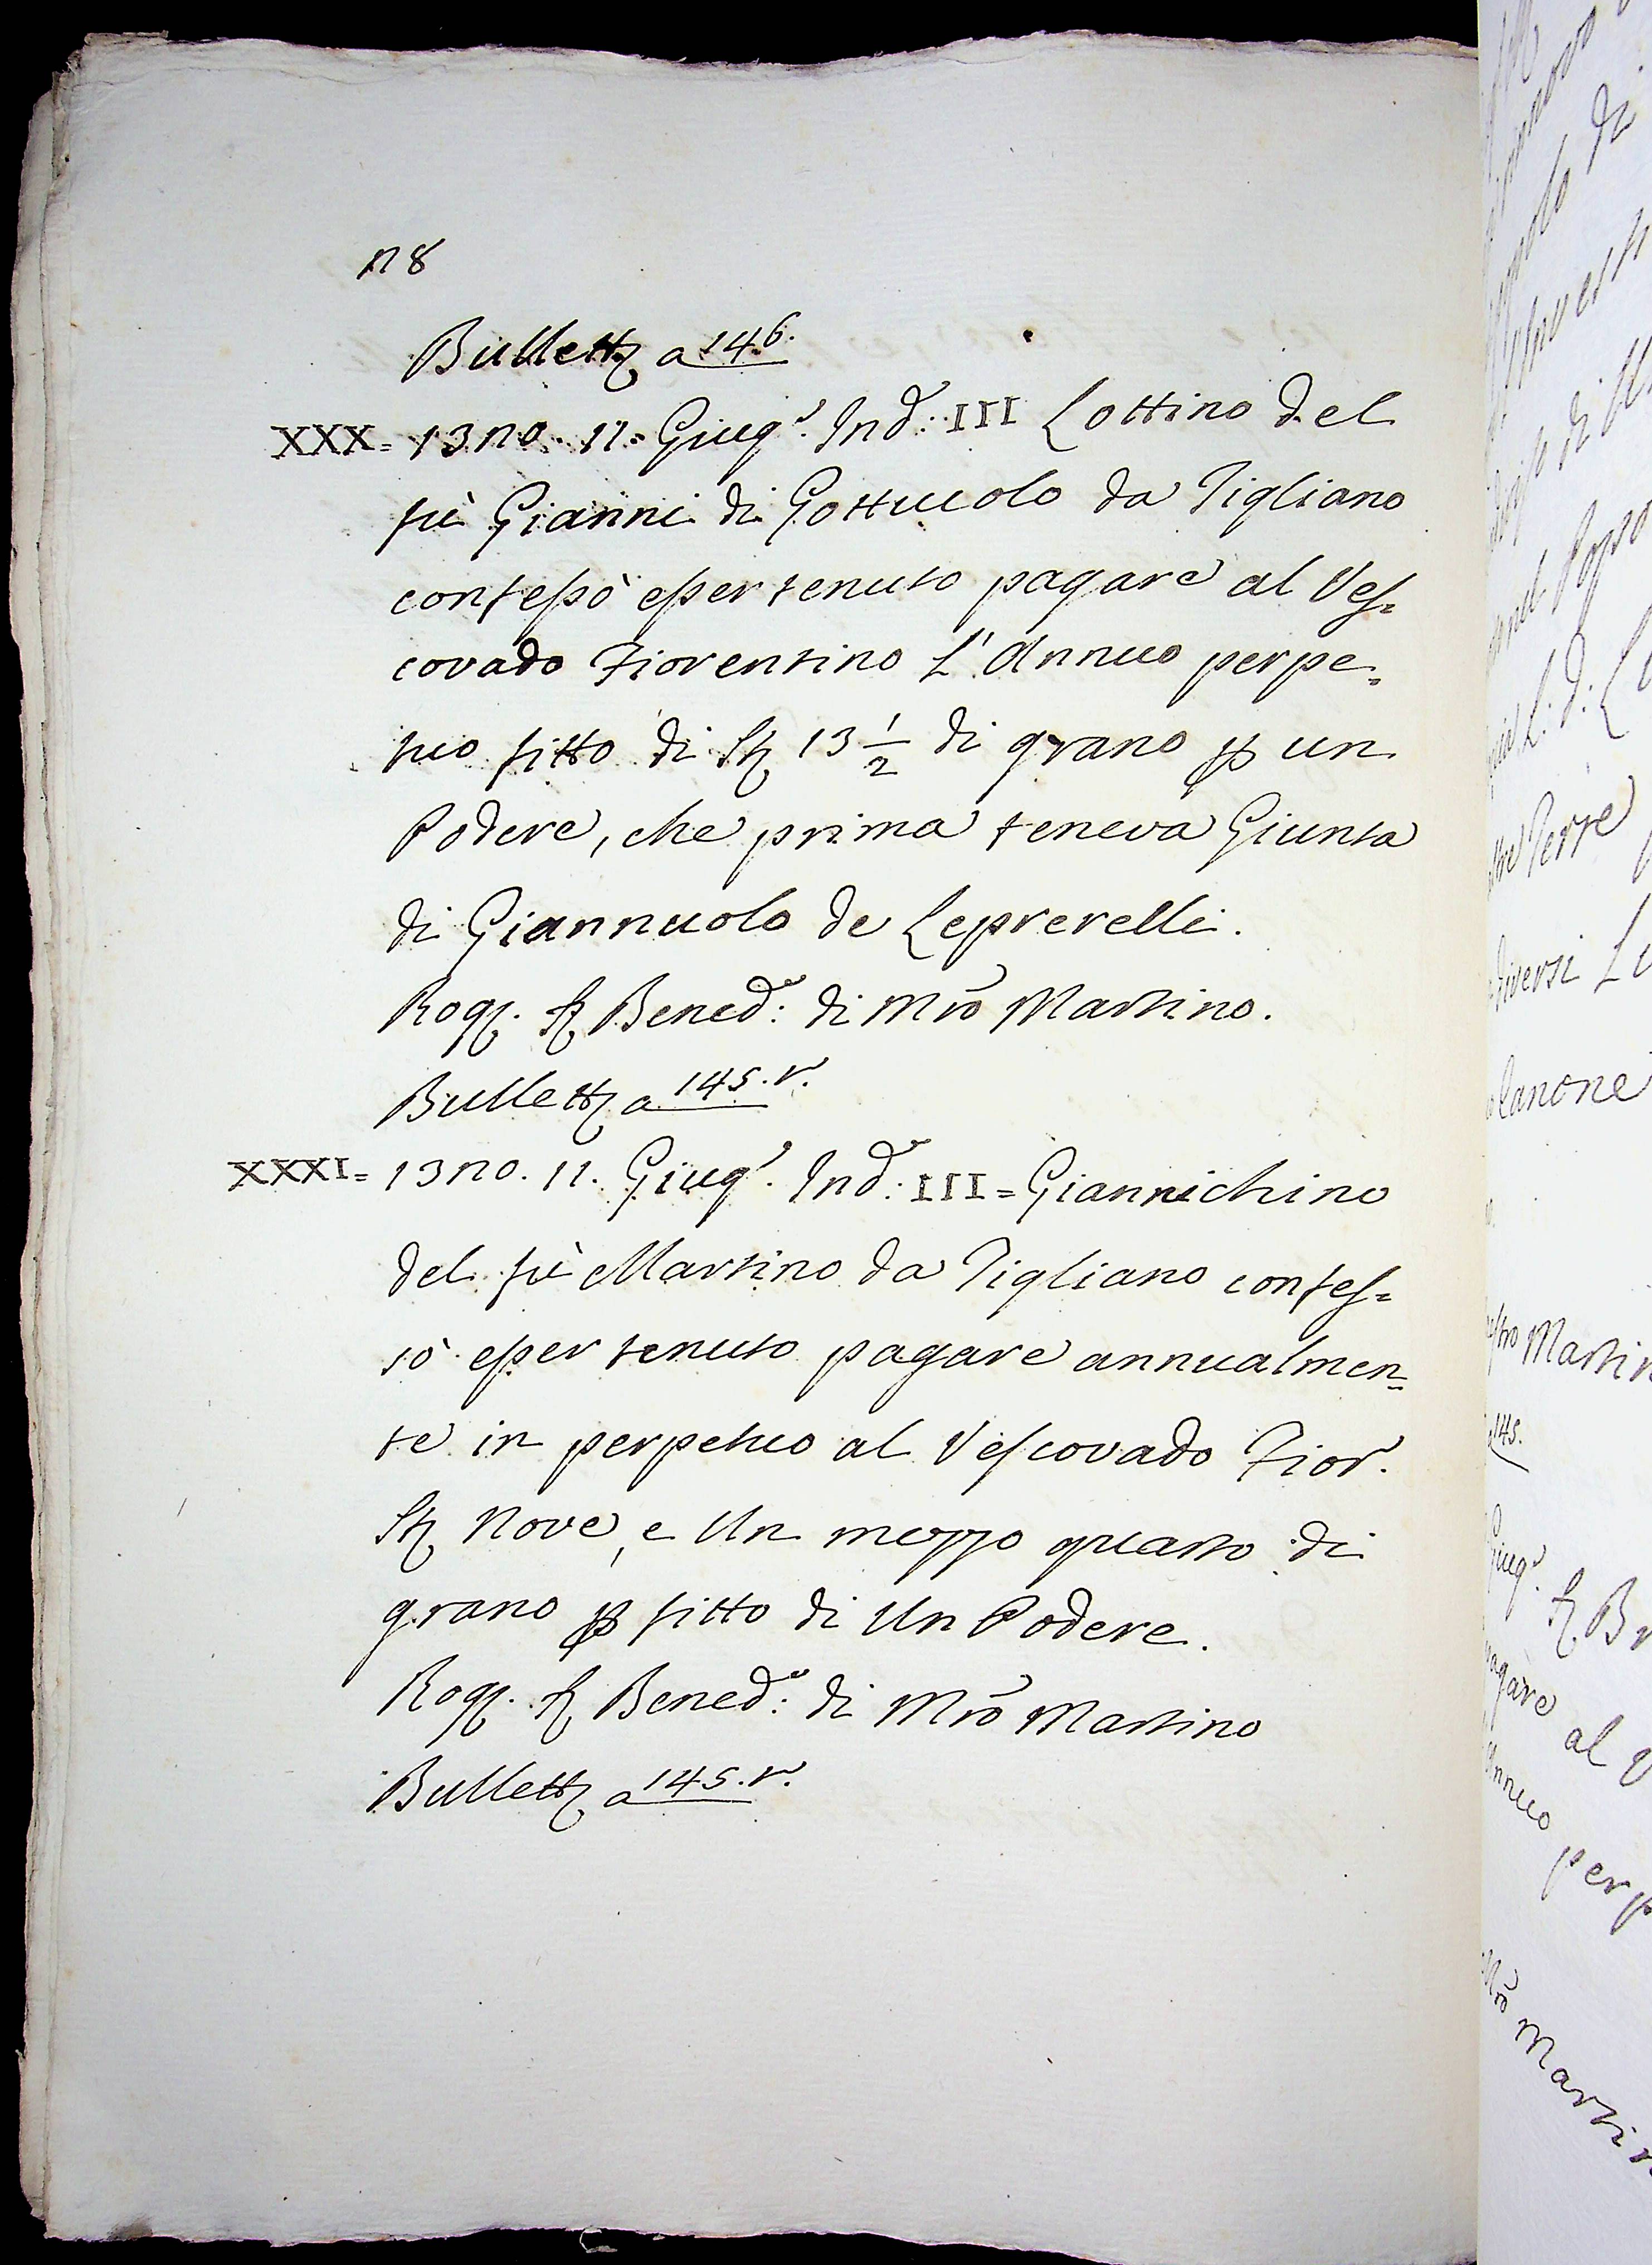 28
Bullett: a 146.
XXX= 1320. 11. Giugº. Indº: III Lottino del
fù Gianni di Gottuolo da Tigliano
confessò esser tenuto pagare al Ves=
covado Fiorentino L'Annuo perpe=
tuo fitto di St: 13 1/2 di grano p un
Podere, che prima teneva Giunta
di Giannuolo de Leprerelli.
Rog: Sr Benedº: di Mrõ Martino.
Bullett: a 145.v.
XXXI= 1320. 11. Giugº. Indº: III = Giannichino
del fù Martino da Tigliano confes=
sò esser tenuto pagare annualmen=
te in perpetuo al Vescovado Fiorº.
St: Nove, e Un mezzo quarto di
grano p fitto di Un Podere.
Rog: Sr Benedº: di Mrõ Martino
Bullett: a 145.v.
tre Terre
diversi
Canone
Martin
145.
Giugº.
pagare al
Annuo perp
Mrõ Martin